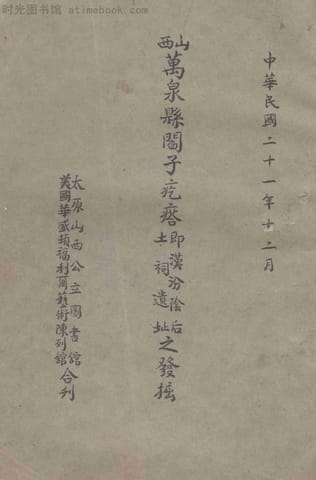 时光图书馆 - atimebook.com
中華民國二十一年十二月
山西萬泉縣閻子疙瘩即漢汾陰后土祠遺址之發掘
太原山西公立圖書館
美國華盛頓福利爾藝術陳列館合刋